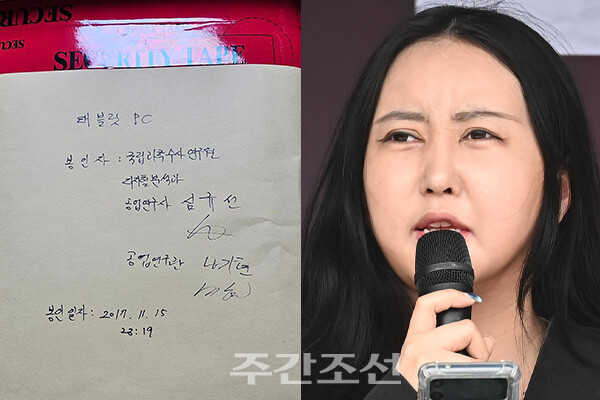 SECURITY TAPE
태블릿 PC
봉인자 : 국립과학수사연구원
디지털분석과
공업연구사 심규선
공업연구관 나기현
봉인일자 : 2017. 11. 15
23:19
주간조선